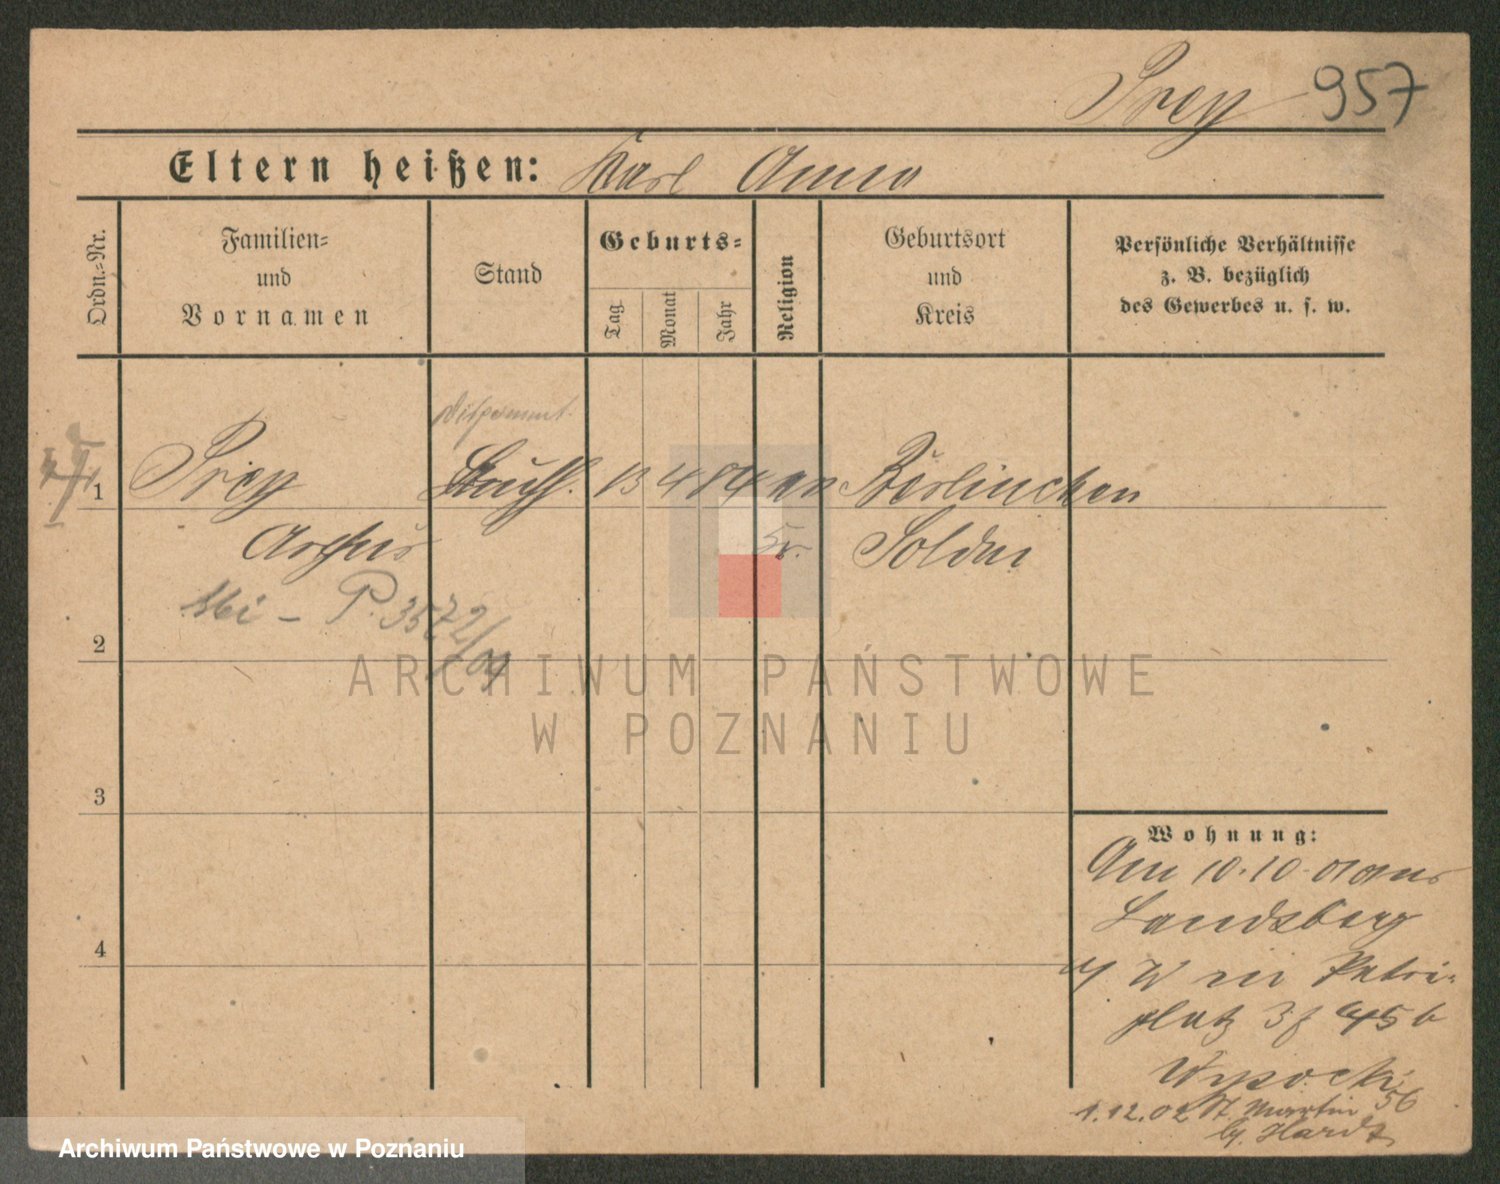 Prey 957
Eltern heißen: Karl Anna
Ordn.=Nr.
Familien=
und
Vornamen
Stand
Geburts=
Tag
Monat
Jahr
Religion
Geburtsort
und
Kreis
Persönliche Verhältnisse
z. B. bezüglich
des Gewerbes u. s. w.
1
Prey
13 4 84
Berlinchen
Arthur
Soldin
P. 3572/09
2
3
4
Wohnung:
Am 10.10.01 aus
Landsberg
a/W Petri=
platz 3
Wysocki
1.12.02 St Martin 56
b. Hardt
ARCHIWUM PAŃSTWOWE
W POZNANIU
Archiwum Państwowe w Poznaniu